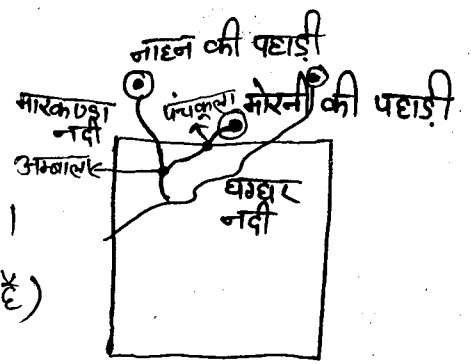 नाहन की पहाड़ी
मारकण्डा
नदी
पंचकूला
मोरनी की पहाड़ी
अम्बाला
घग्घर
नदी
।
है)